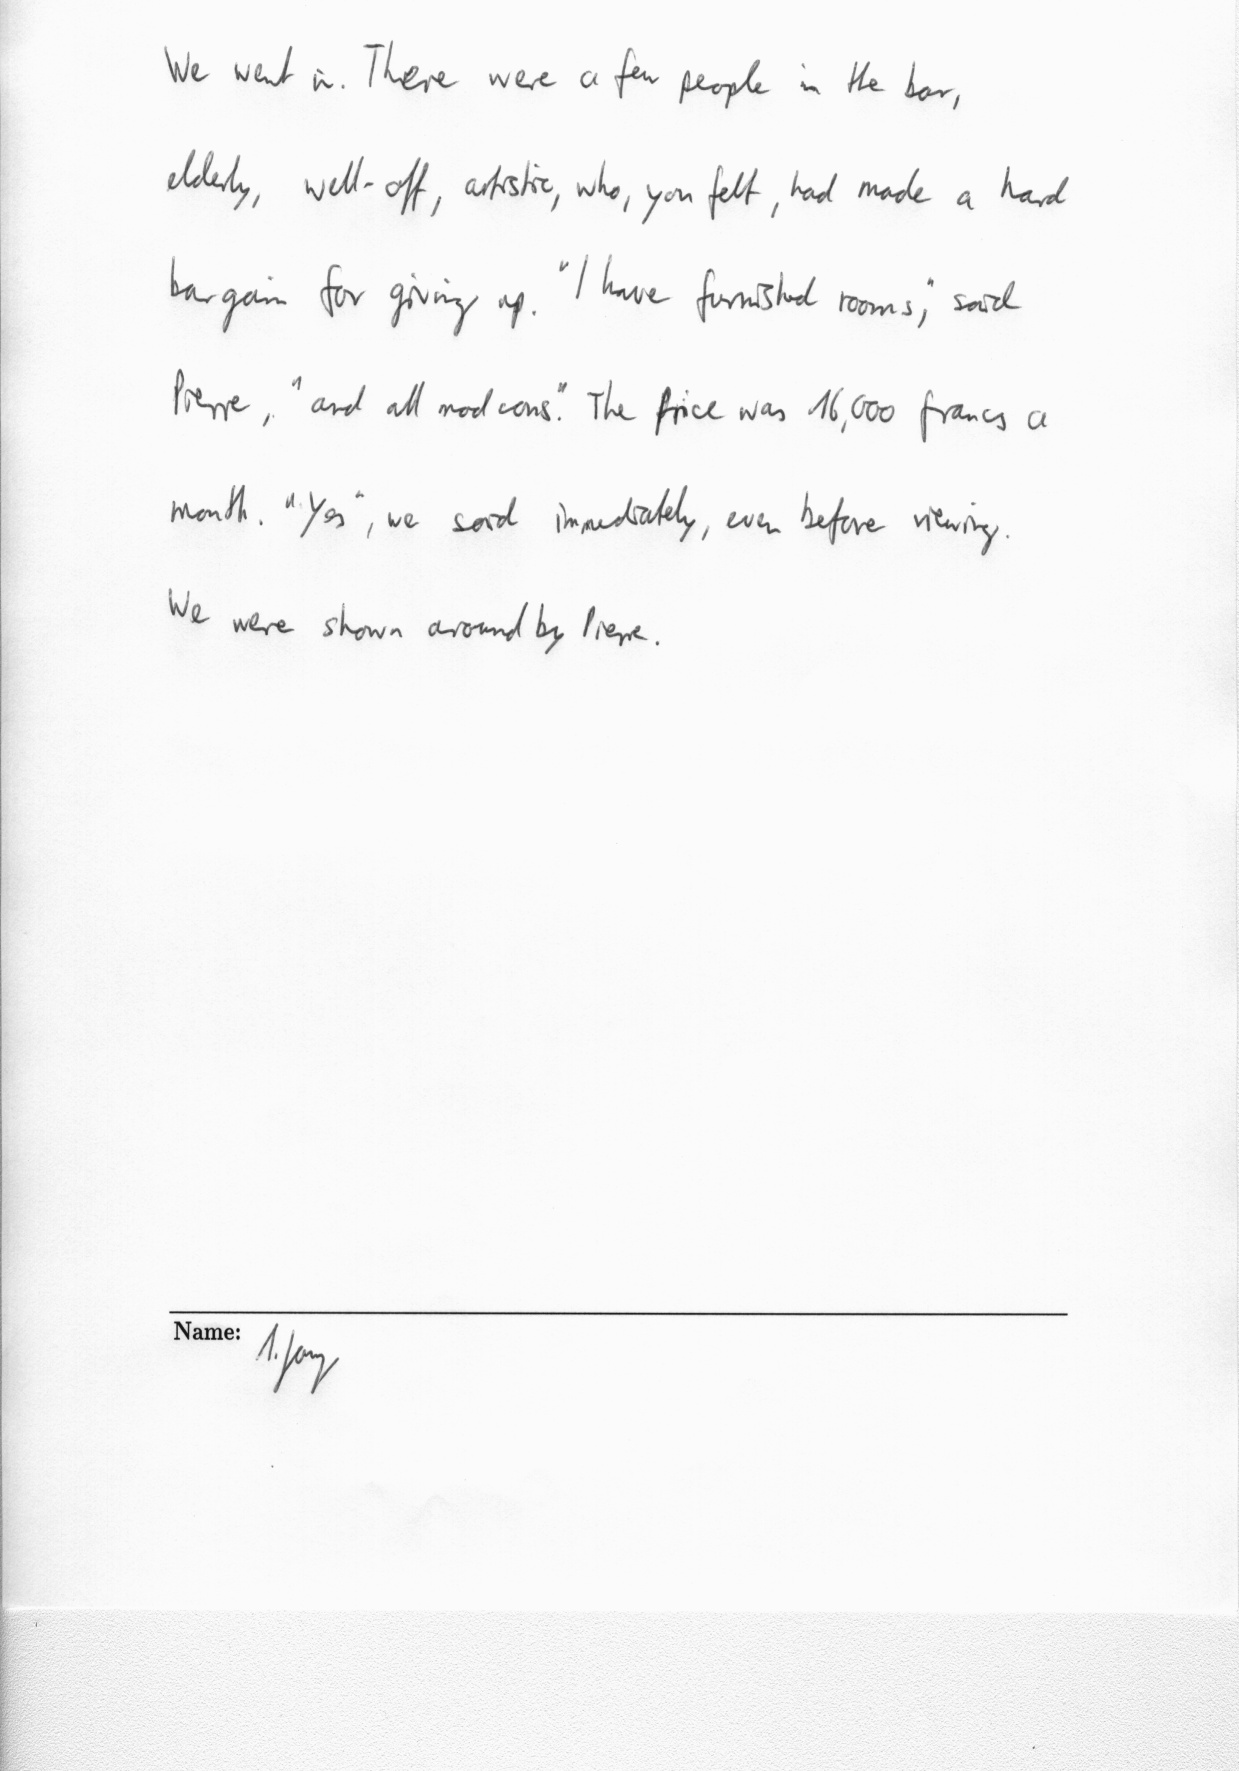 We went in. There were a few people in the bar,
elderly, well-off, artistic, who, you felt, had made a hard
bargain for giving up. "I have furnished rooms," said
Pierre, "and all mod cons". The price was 16,000 francs a
month. "Yes", we said immediately, even before viewing.
We were shown around by Pierre.
Name: